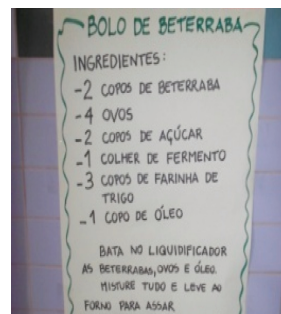 BOLO DE BETERRABA
INGREDIENTES:
-2 COPOS DE BETERRABA
-4 OVOS
-2 COPOS DE AÇÚCAR
-1 COLHER DE FERMENTO
-3 COPOS DE FARINHA DE
TRIGO
-1 COPO DE ÓLEO
BATA NO LIQUIDIFICADOR
AS BETERRABAS, OVOS E ÓLEO.
MISTURE TUDO E LEVE AO
FORNO PARA ASSAR